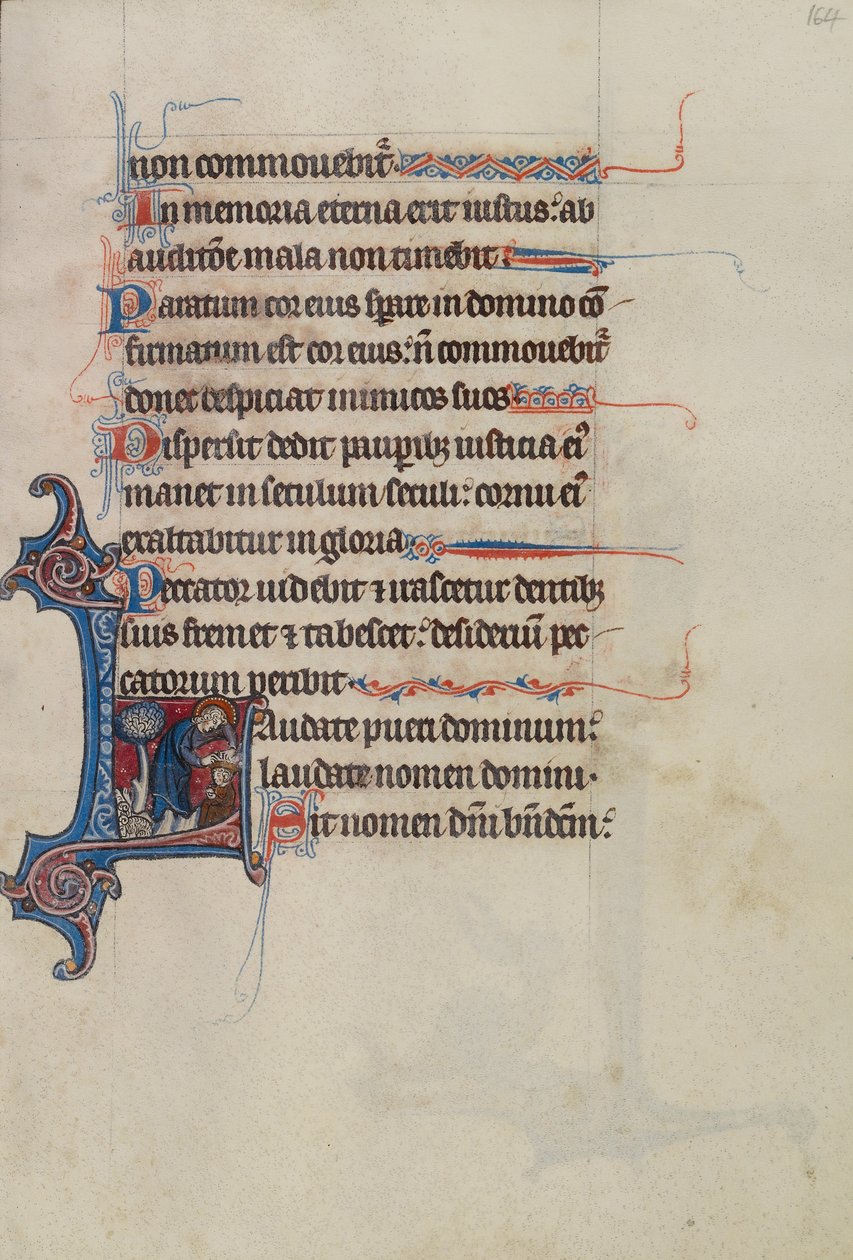 164
non commouebit᷑.
In memoria eterna erit iustus: ab
auditōe mala non timebit:
Paratum cor eius sꝑare in domino cō
firmatum est cor eius: n̄ commouebit᷑
donec despiciat inimicos suos.
Dispersit dedit pauꝑibꝫ iusticia ei⁹
manet in seculum seculi: cornu ei⁹
exaltabitur in gloria
Peccator uidebit ⁊ irascetur dentibꝫ
suis fremet ⁊ tabescet: desideriū pec
catorum peribit.
Laudate pueri dominum:
laudate nomen domini.
Sit nomen dn̄i bn̄dc̄m: